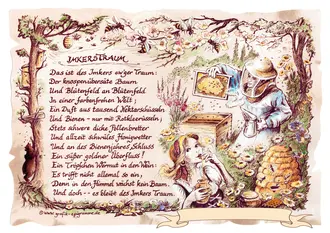 IMKERSTRAUM
Das ist des Imkers ewiger Traum:
Der knospenübersäte Baum
Und Blütenfeld an Blütenfeld
In einer farbenfrohen Welt;
Ein Duft aus tausend Nektarschüsseln
Und Bienen - nur mit Rotkleerüsseln;
Stets schwere dicke Pollenbretter
Und allzeit schwüles Honigwetter
Und an des Bienenjahres Schluss
Ein süßer goldner Überfluss!
Ein Tröpfchen Wermut in den Wein:
Es trifft nicht allemal so ein,
Denn in den Himmel wächst kein Baum.
Und doch -- es bleibt des Imkers Traum.